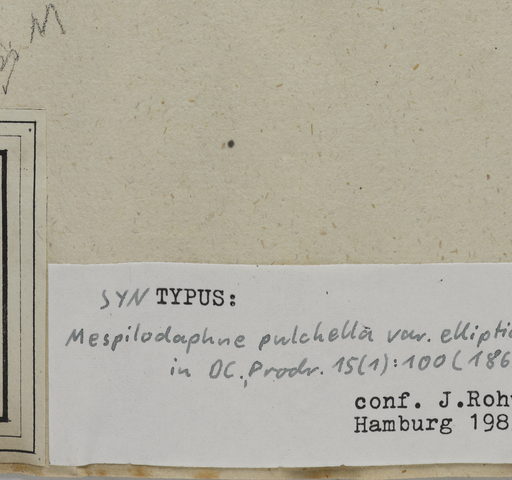 M
SYN TYPUS:
Mespilodaphne pulchella var. ellipti
in DC., Prodr. 15(1):100 (186
conf. J.Roh
Hamburg 198